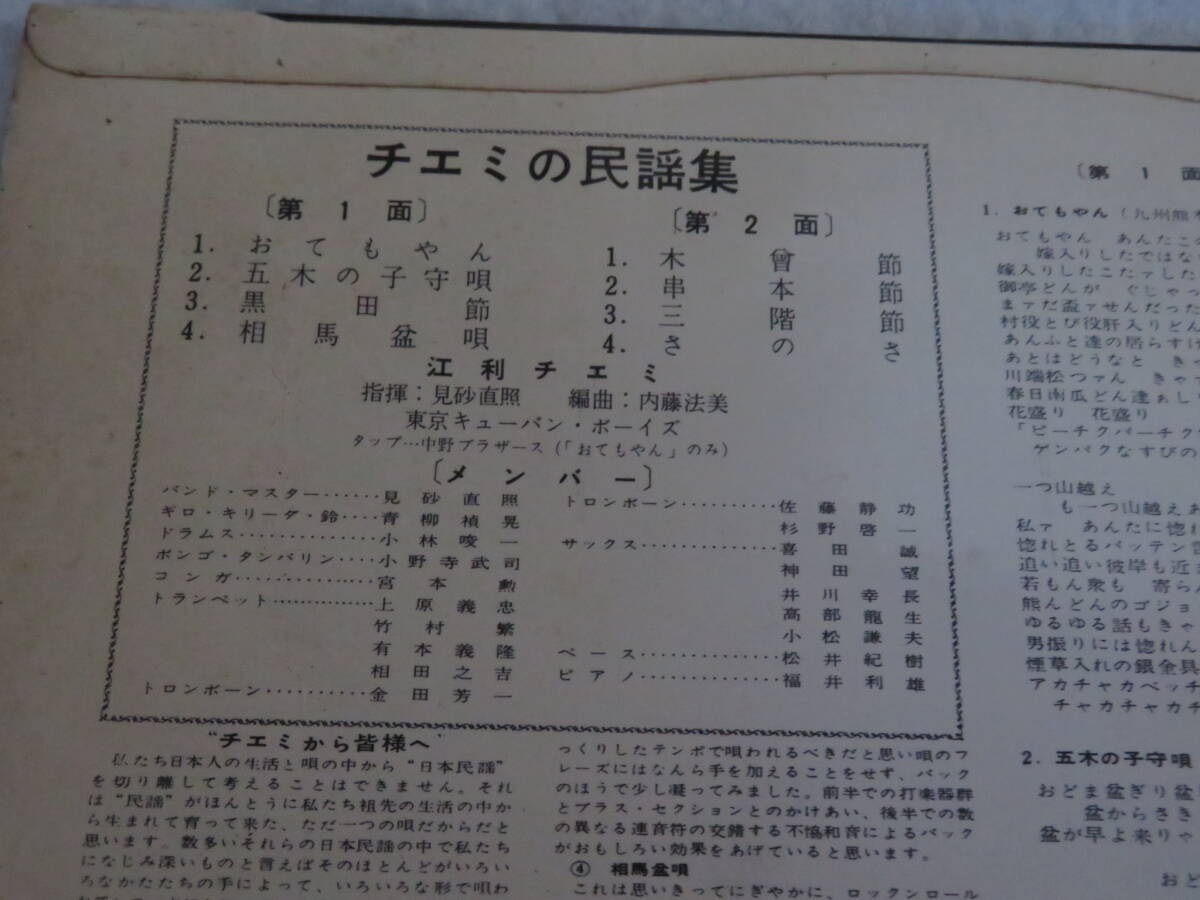 チエミの民謡集
〔第1面〕
1. おてもやん
2. 五木の子守唄
3. 黒田節
4. 相馬盆唄
〔第2面〕
1. 木曾節
2. 串本節
3. 三階節
4. さのさ
江利チエミ
指揮：見砂直照 編曲：内藤法美
東京キューバン・ボーイズ
タップ…中野ブラザース（「おてもやん」のみ）
〔メンバー〕
バンド・マスター……見砂直照
ギロ・キリーダ・鈴……青柳禎晃
ドラムス……………小林唆一
ボンゴ・タンバリン……小野寺武司
コンガ……………宮本勲
トランペット……………上原義忠
竹村繁
有本義隆
相田之吉
トロンボーン…………金田芳一
トロンボーン…………佐藤静功
杉野啓一
サックス……………喜田誠
神田望
井川幸長
高部龍生
小松謙夫
ベース……………松井紀樹
ピアノ……………福井利雄
“チエミから皆様へ”
私たち日本人の生活と唄の中から“日本民謡”
を切り離して考えることはできません。それ
は“民謡”がほんとうに私たち祖先の生活の中か
ら生まれて育って来た、ただ一つの唄だからだと
思います。数多いそれらの日本民謡の中で私たち
になじみ深いものと言えばそのほとんどがいろい
ろなかたたちの手によって、いろいろな形で唄わ
っくりしたテンポで唄われるべきだと思い唄のフ
レーズにはなんら手を加えることをせず、バック
のほうで少し凝ってみました。前半での打楽器群
とブラス・セクションとのかけあい、後半での数
の異なる連音符の交錯する不協和音によるバック
がおもしろい効果をあげていると思います。
④ 相馬盆唄
これは思いきってにぎやかに、ロックンロール
〔第1面
1. おてもやん（九州熊
おてもやん あんたこ
嫁入りしたではな
嫁入りしたこたァした
御亭どんが ぐじゃっ
まァだ盃ァせんだっ
村役とび役肝入りどん
あんふと達の居らすけ
あとはどうなと き
川端松つァん きゃ
春日南瓜どん達ぁし
花盛り 花盛り
「ピーチクパーチク
ゲンパクなすびの
一つ山越え
も一つ山越えあ
私ァ あんたに惚
惚れとるバッテン
追い追い彼岸も近ま
若もん衆も 寄らん
熊んどんのゴジョ
ゆるゆる話もきゃ
男振りには惚れん
煙草入れの銀金具
アカチャカベッチ
チャカチャカチ
2. 五木の子守唄
おどま盆ぎり盆
盆からさき
盆が早よ来りゃ
おど